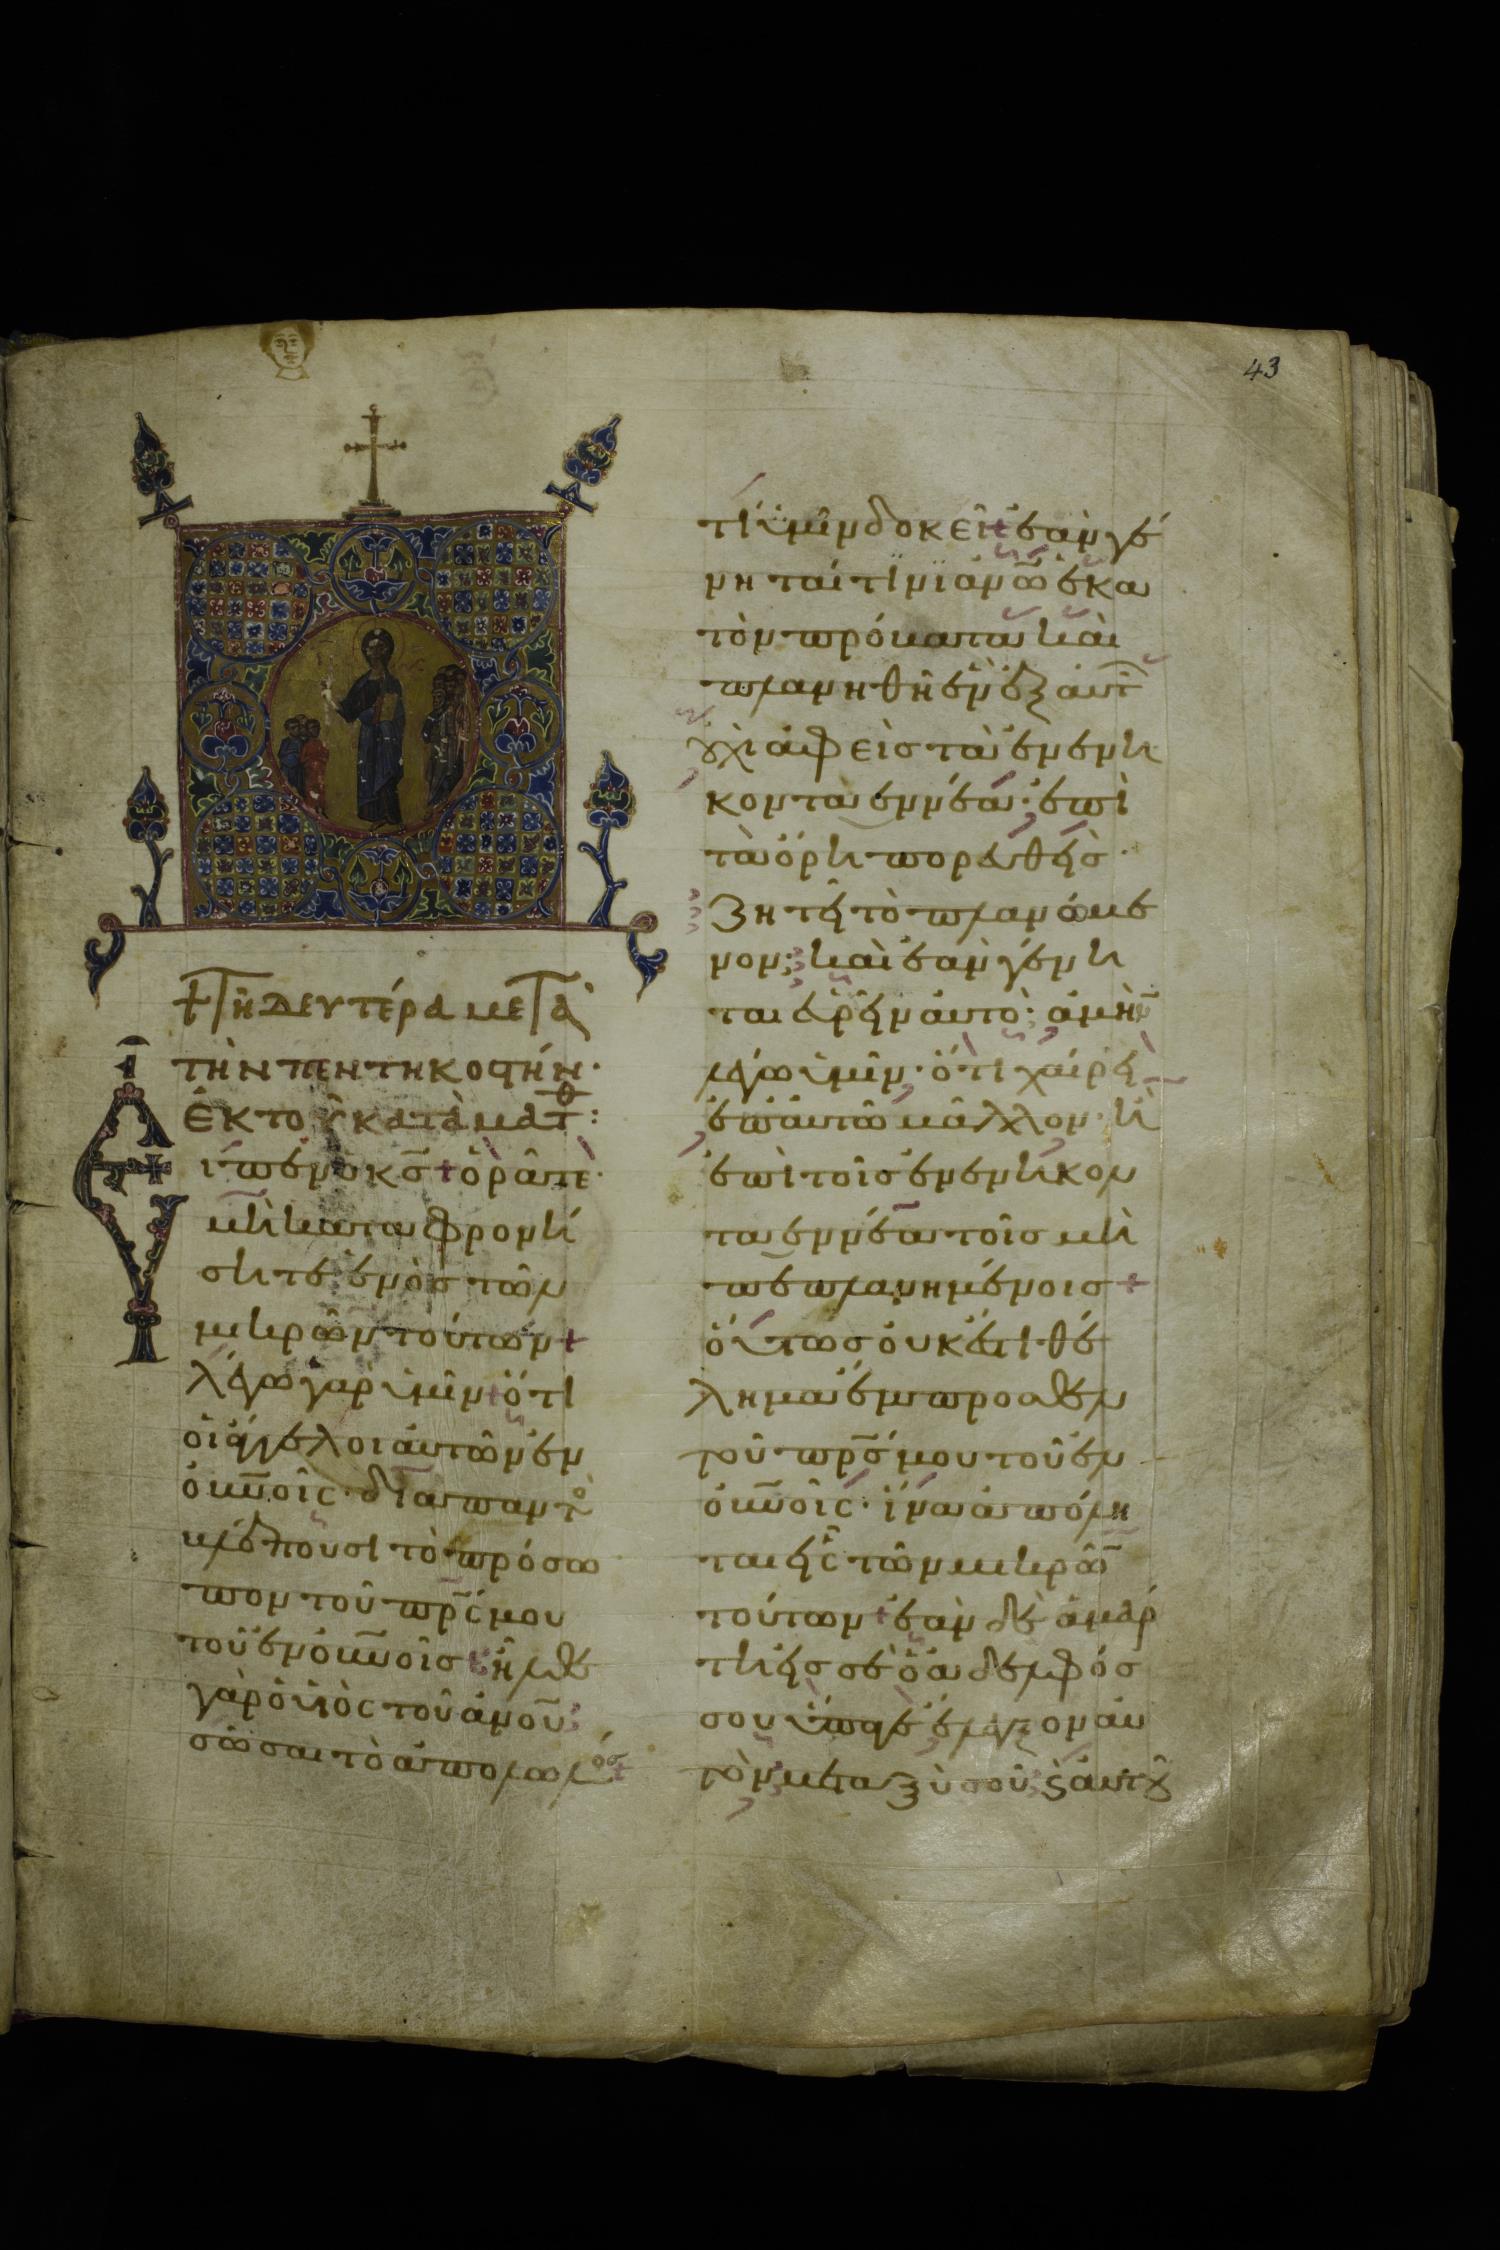 43
+ Τῆ δευτέρα μετὰ
τὴν πεντηκοστήν·
ἐκ τοῦ κατὰ Ματθ:
Εἶπεν ὁ κς+ ὁρᾶτε·
μὴ καταφρονή
σητε ἑνὸς τῶν
μικρῶν τούτων+
λέγω γὰρ ὑμῖν+ ὅτι
οἱ ἄγγελοι αὐτῶν ἐν
ουνοῖς· διαπαντὸ
βλέπουσι τὸ πρόσω
πον τοῦ πρς μου
τοῦ ἐν ουνοῖς+ ἦλθε
γὰρ ὁ υἱὸς τοῦ ανου
σῶσαι τὸ ἀπολωλός+
τί ὑμῖν δοκεῖ+ ἐὰν γέ
νηταί τινι ανω ἑκα
τὸν πρόβατα καὶ
πλανηθῆ ἓν ἐξ αὐτ
οὐχὶ ἀφεὶς τὰ ἐνενή
κονταεννέα· ἐπὶ
τὰ ὄρη πορευθεὶς·
ζητεῖ τὸ πλανώμε
νον; καὶ ἐὰν γένη
ται εὑρεῖν αὐτό· ἀμὴν
λέγω ὑμῖν· ὅτι χαίρει
ἐπ' αὐτῶ μᾶλλον· ἢ
ἐπὶ τοῖς ἐνενήκον
ταεννέα τοῖς μὴ
πεπλανημένοις+
οὕτως οὐκ ἔστι θέ
λημα ἔμπροσθεν
τοῦ πρς μου τοῦ ἐν
ουνοῖς· ἵνα ἀπόλη
ται εἷς τῶν μικρῶ
τούτων+ ἐὰν δὲ ἁμαρ
τήσει εἰς σὲ ὁ ἀδελφός
σου ὕπαγε ἔλεγξον αὐ
τὸν μεταξὺ σοῦ ϗ αὐτοῦ